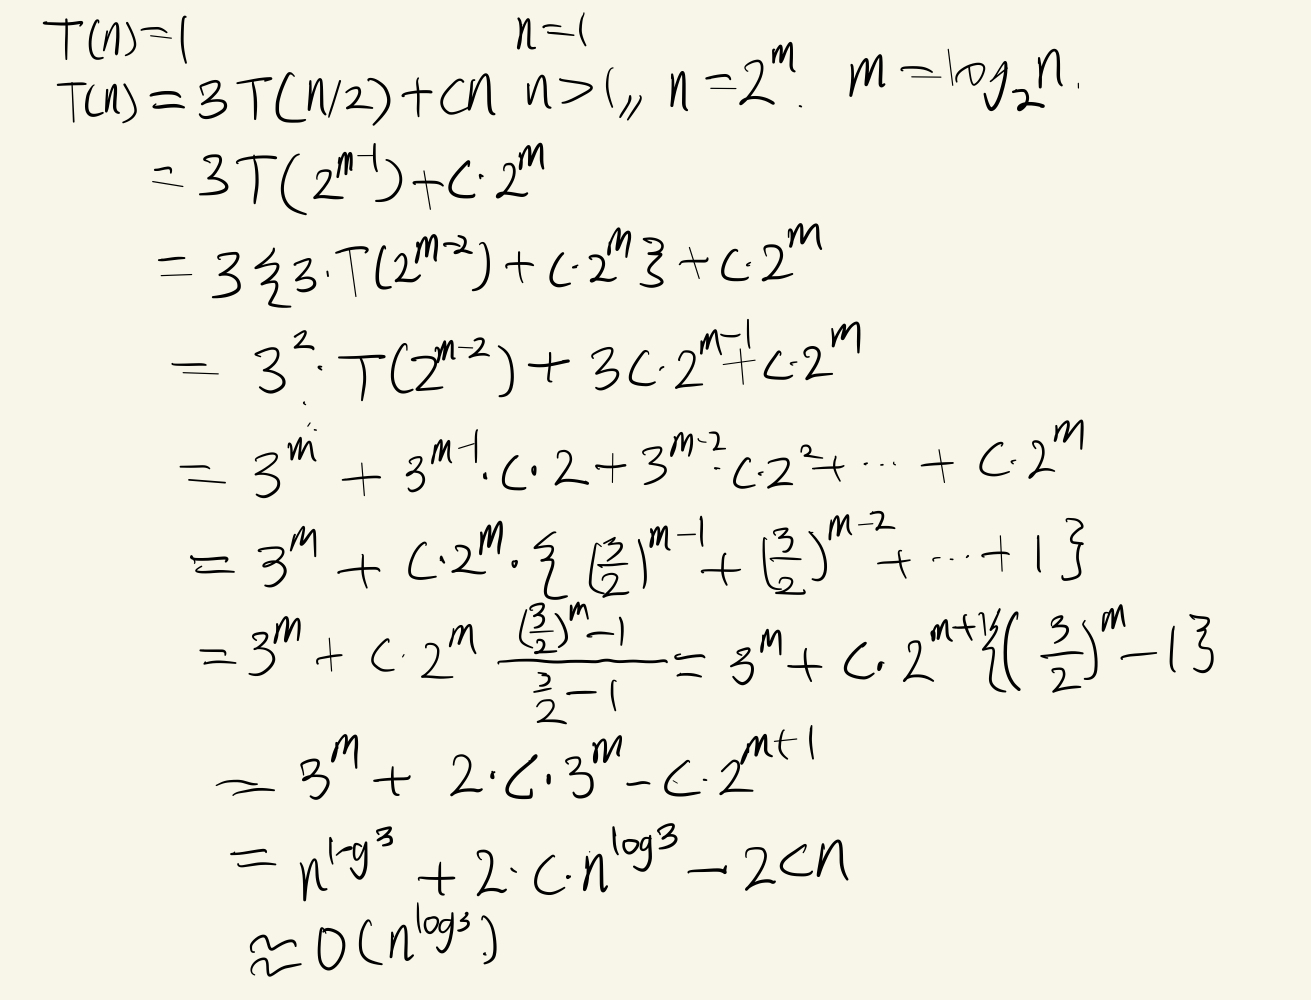 T(n)=1 n=1
T(n)=3T(n/2)+cn n>1,, n=2^m. m=log_2 n.
=3T(2^{m-1})+c·2^m
=3{3·T(2^{m-2})+c·2^m}+c·2^m
=3^2·T(2^{m-2})+3c·2^{m-1}+c·2^m
⋮
=3^m+3^{m-1}·c·2+3^{m-2}·c·2^2+···+c·2^m
=3^m+c·2^m·{(3/2)^{m-1}+(3/2)^{m-2}+···+1}
=3^m+c·2^m ((3/2)^m-1)/(3/2-1)=3^m+c·2^{m+1}{(3/2)^m-1}
=3^m+2·c·3^m-c·2^{m+1}
=n^{log3}+2·c·n^{log3}-2cn
≈O(n^{log3})